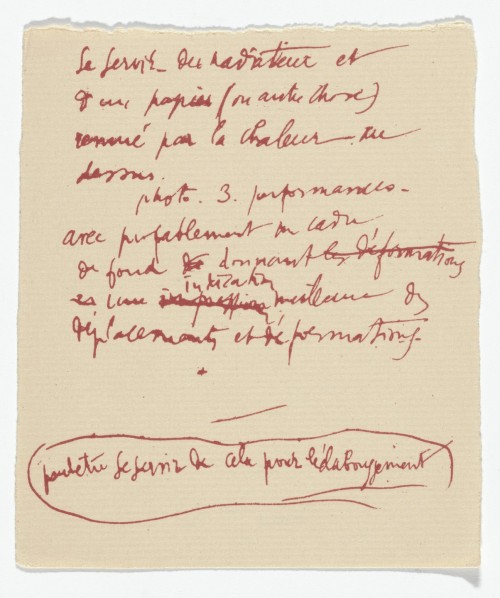 Se servir du radiateur et
d'un papier (ou autre chose)
remué par la chaleur au
dessus.
photo. 3. performances -
avec probablement un cadre
de fond donnant les déformations
indication
une meilleure des
déplacements et déformations.
*
peut être se servir de cela pour